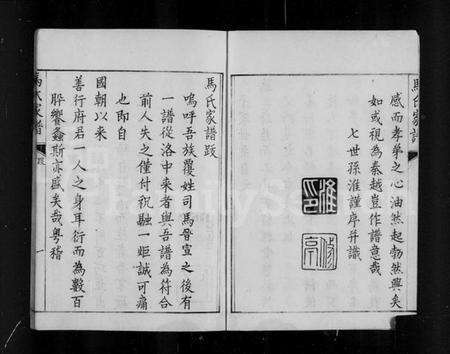 馬氏家譜
感而孝弟之心油然起勃然興矣
如或視為秦越豈作譜意哉
七世孫淮謹序并識
馬氏家譜跋
嗚呼吾族覆姓司馬晉宣之後有
一譜從洛中來者與吾譜為符合
前人失之僅付祝融一炬誠可痛
也即自
國朝以來
善行府君一人之身耳衍而為數百
肸蠁螽斯亦盛矣哉粵稽
馬氏家譜
跋
一